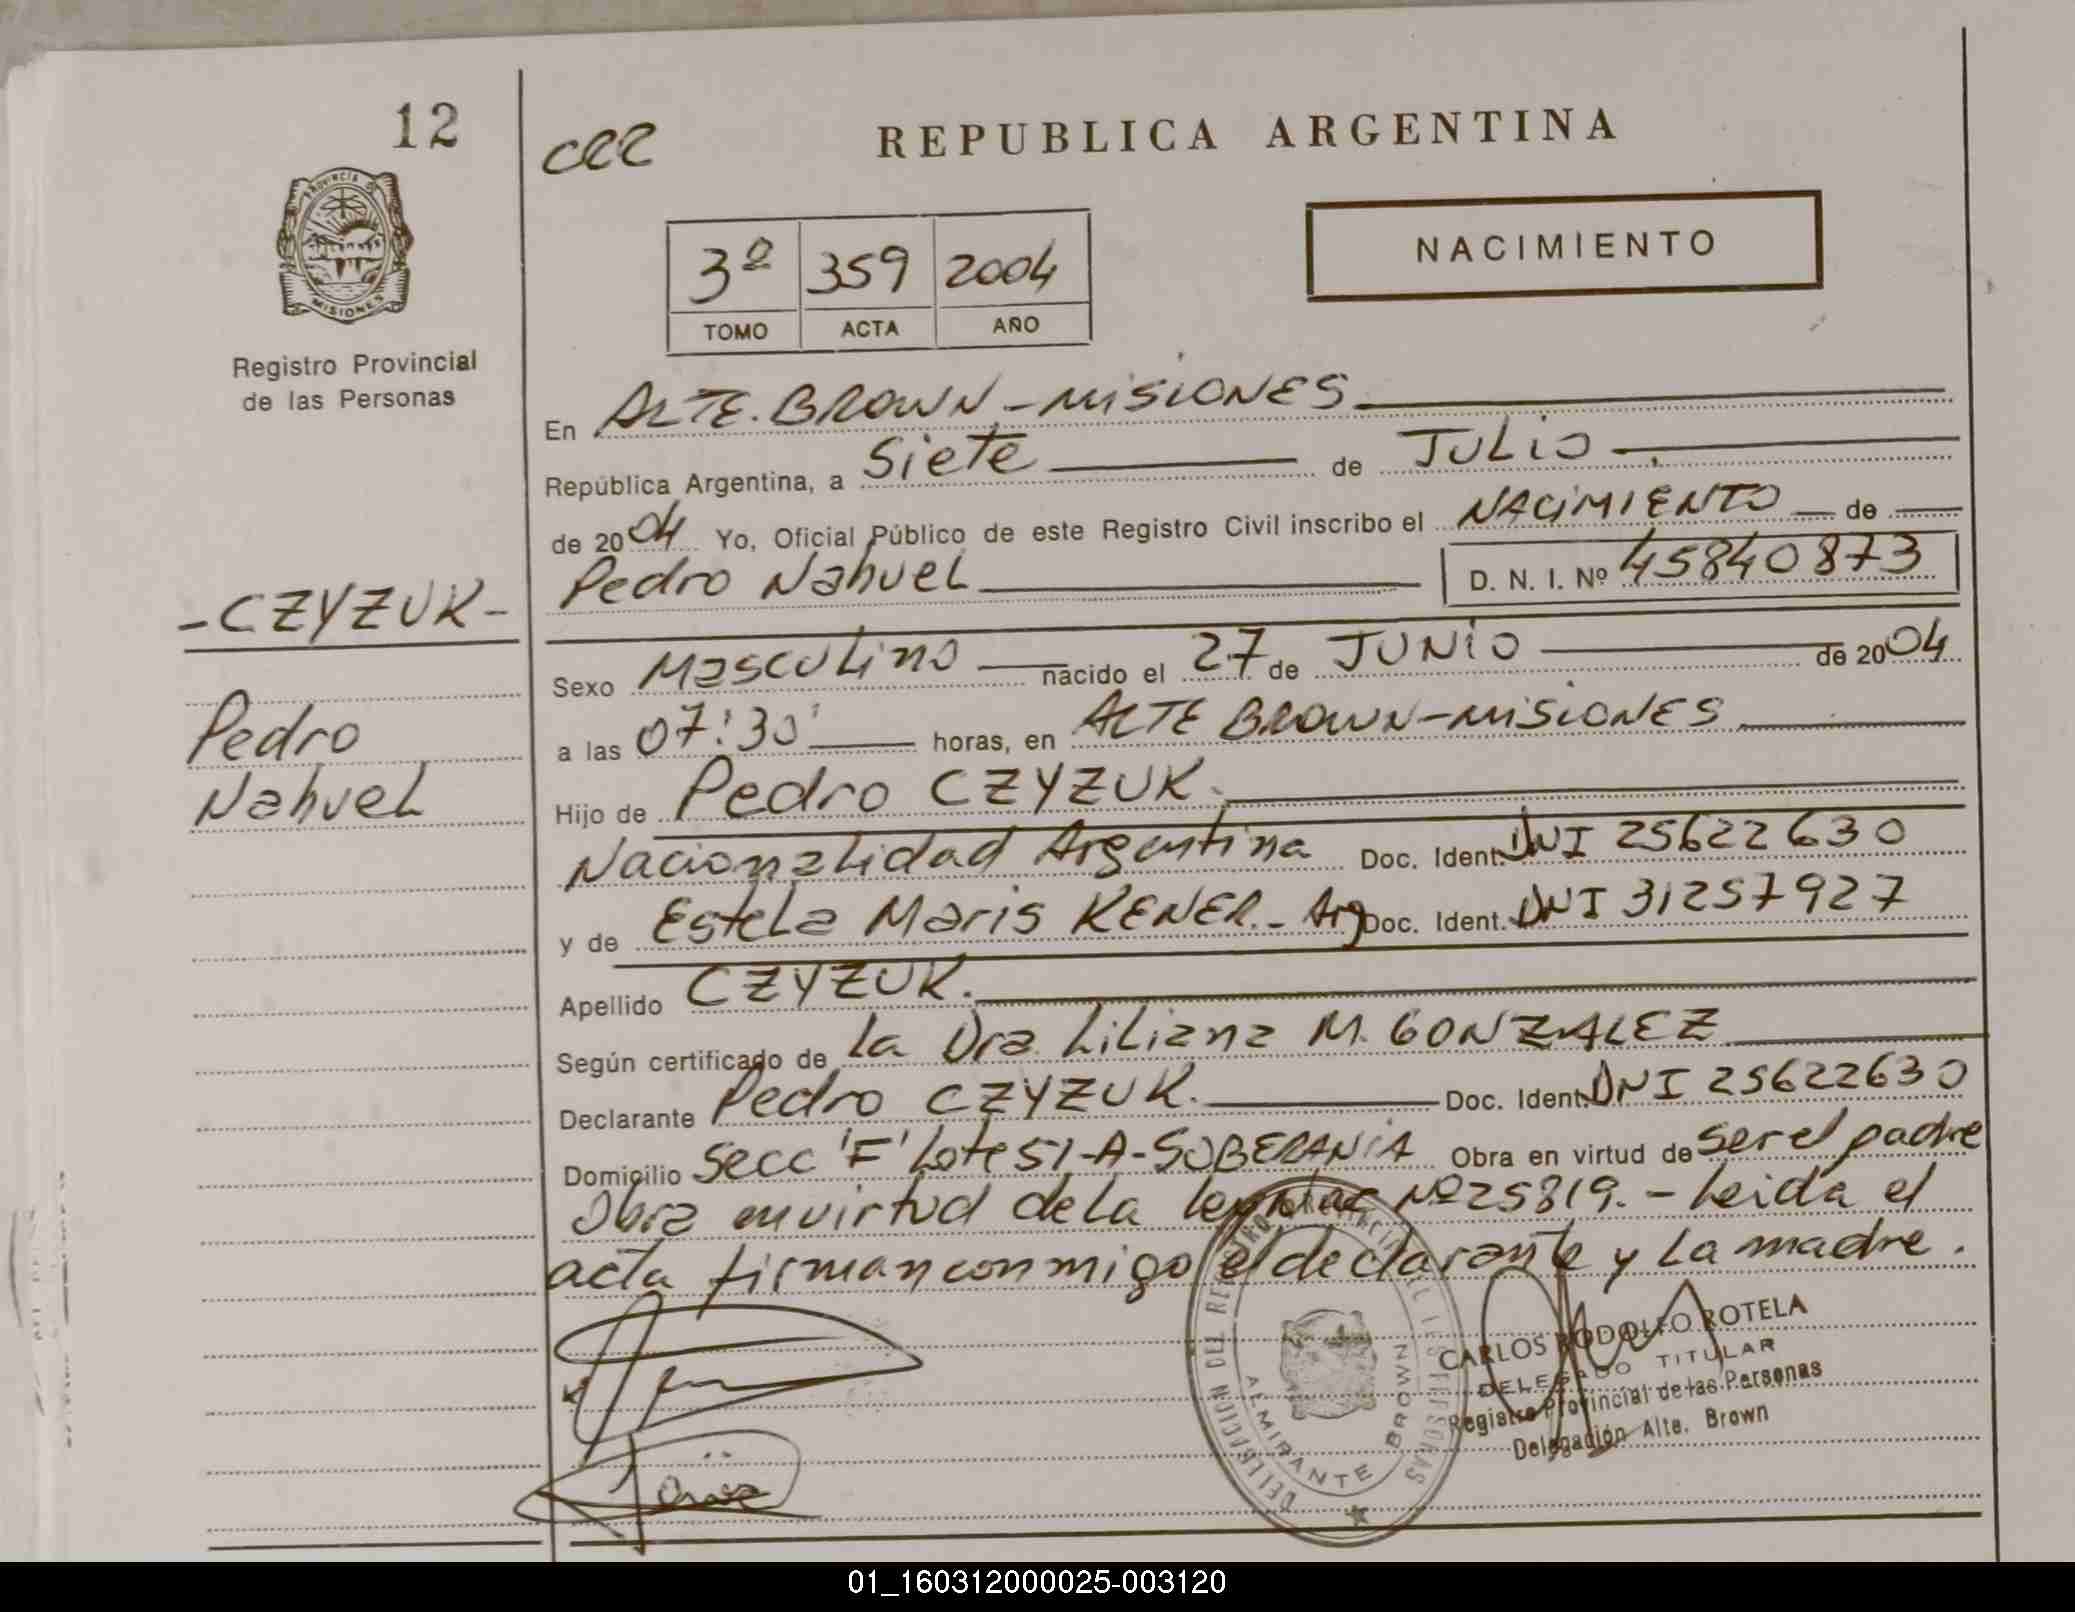 12
cee
REPUBLICA ARGENTINA
PROVINCIA D
MISIONES
Registro Provincial
de las Personas
3º 359 2004
TOMO ACTA AÑO
NACIMIENTO
En ALTE. BROWN - MISIONES
República Argentina, a Siete de JULIO
de 2004 Yo, Oficial Público de este Registro Civil inscribo el NACIMIENTO de
Pedro Nahuel D. N. I. Nº 45840873
- CZYZUK -
Pedro
Nahuel
Sexo Masculino nacido el 27 de JUNIO de 2004
a las 07:30' horas, en ALTE BROWN - MISIONES
Hijo de Pedro CZYZUK.
Nacionalidad Argentina Doc. Ident. DNI 25622630
y de Estela Maris KENER. - Arg Doc. Ident. DNI 31257927
Apellido CZYZUK.
Según certificado de La Dra. Liliana M. GONZALEZ
Declarante Pedro CZYZUK. Doc. Ident. DNI 25622630
Domicilio Secc 'F' Lote 51-A-SOBERANIA Obra en virtud de ser el padre
Obra en virtud de la Ley Nac Nº 25819. - Leida el
acta firman conmigo el declarante y La madre.
DELEGACION DEL REGISTRO PROVINCIAL DE LAS PERSONAS
ALMIRANTE BROWN
CARLOS RODOLFO ROTELA
DELEGADO TITULAR
Registro Provincial de las Personas
Delegación Alte. Brown
01_160312000025-003120